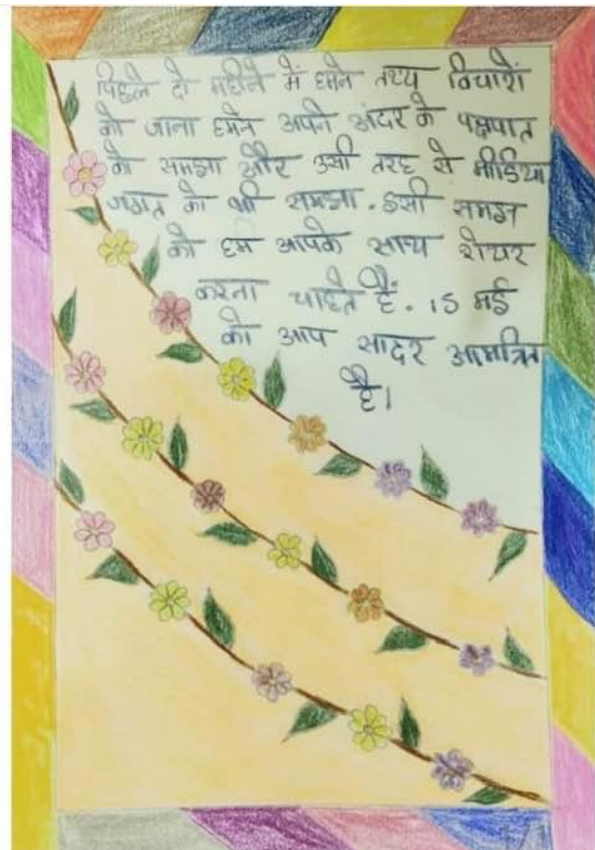 पिछले दो महीने में हमने तथ्य विचारों
को जाना हमने अपने अंदर के पक्षपात
को समझा और उसी तरह से मीडिया
जगत को भी समझा. इसी समझ
को हम आपके साथ शेयर
करना चाहते हैं. 15 मई
को आप सादर आमंत्रित
है।